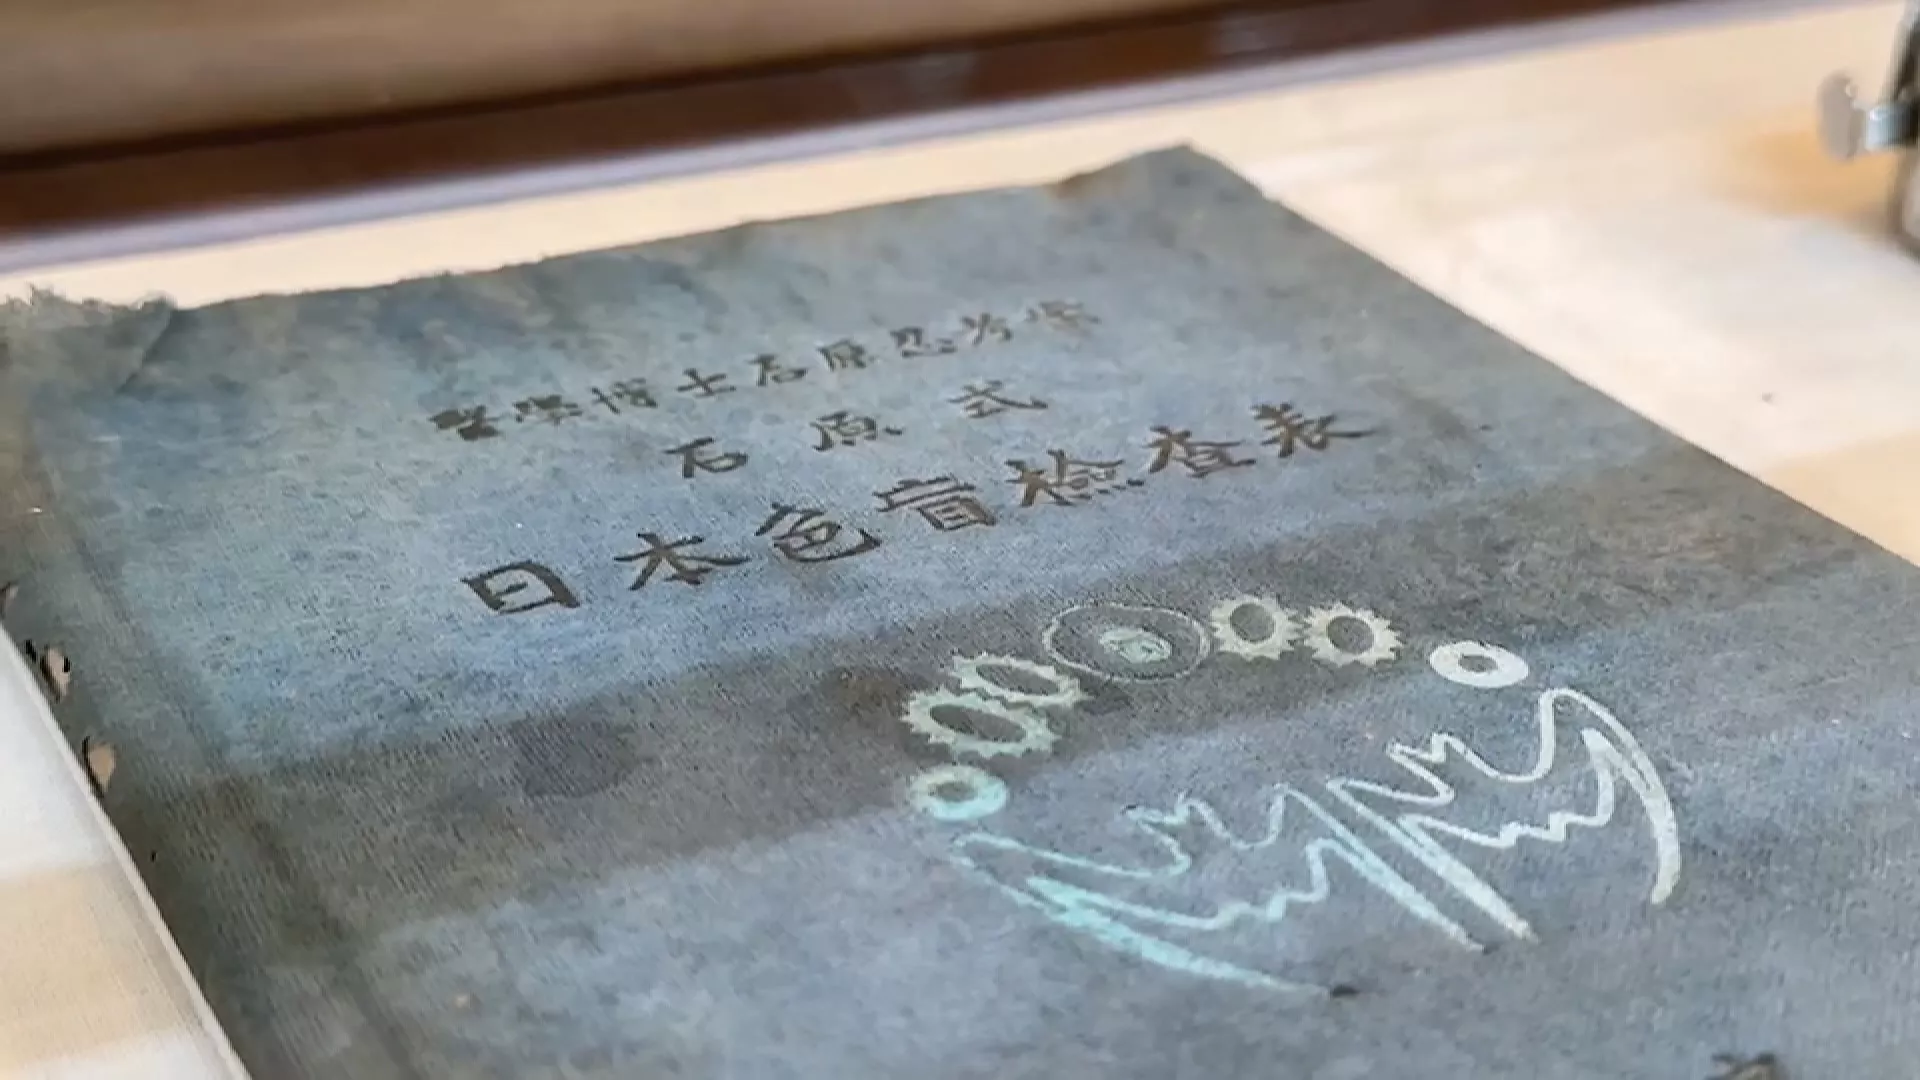 醫學博士石原忍考案
石原式
日本色盲檢査表